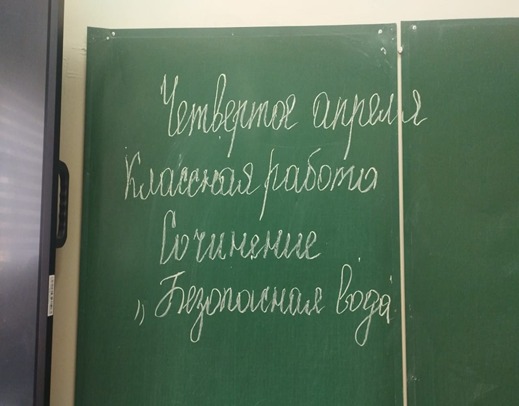 Четвертое апреля
Классная работа
Сочинение
„Безопасная вода"